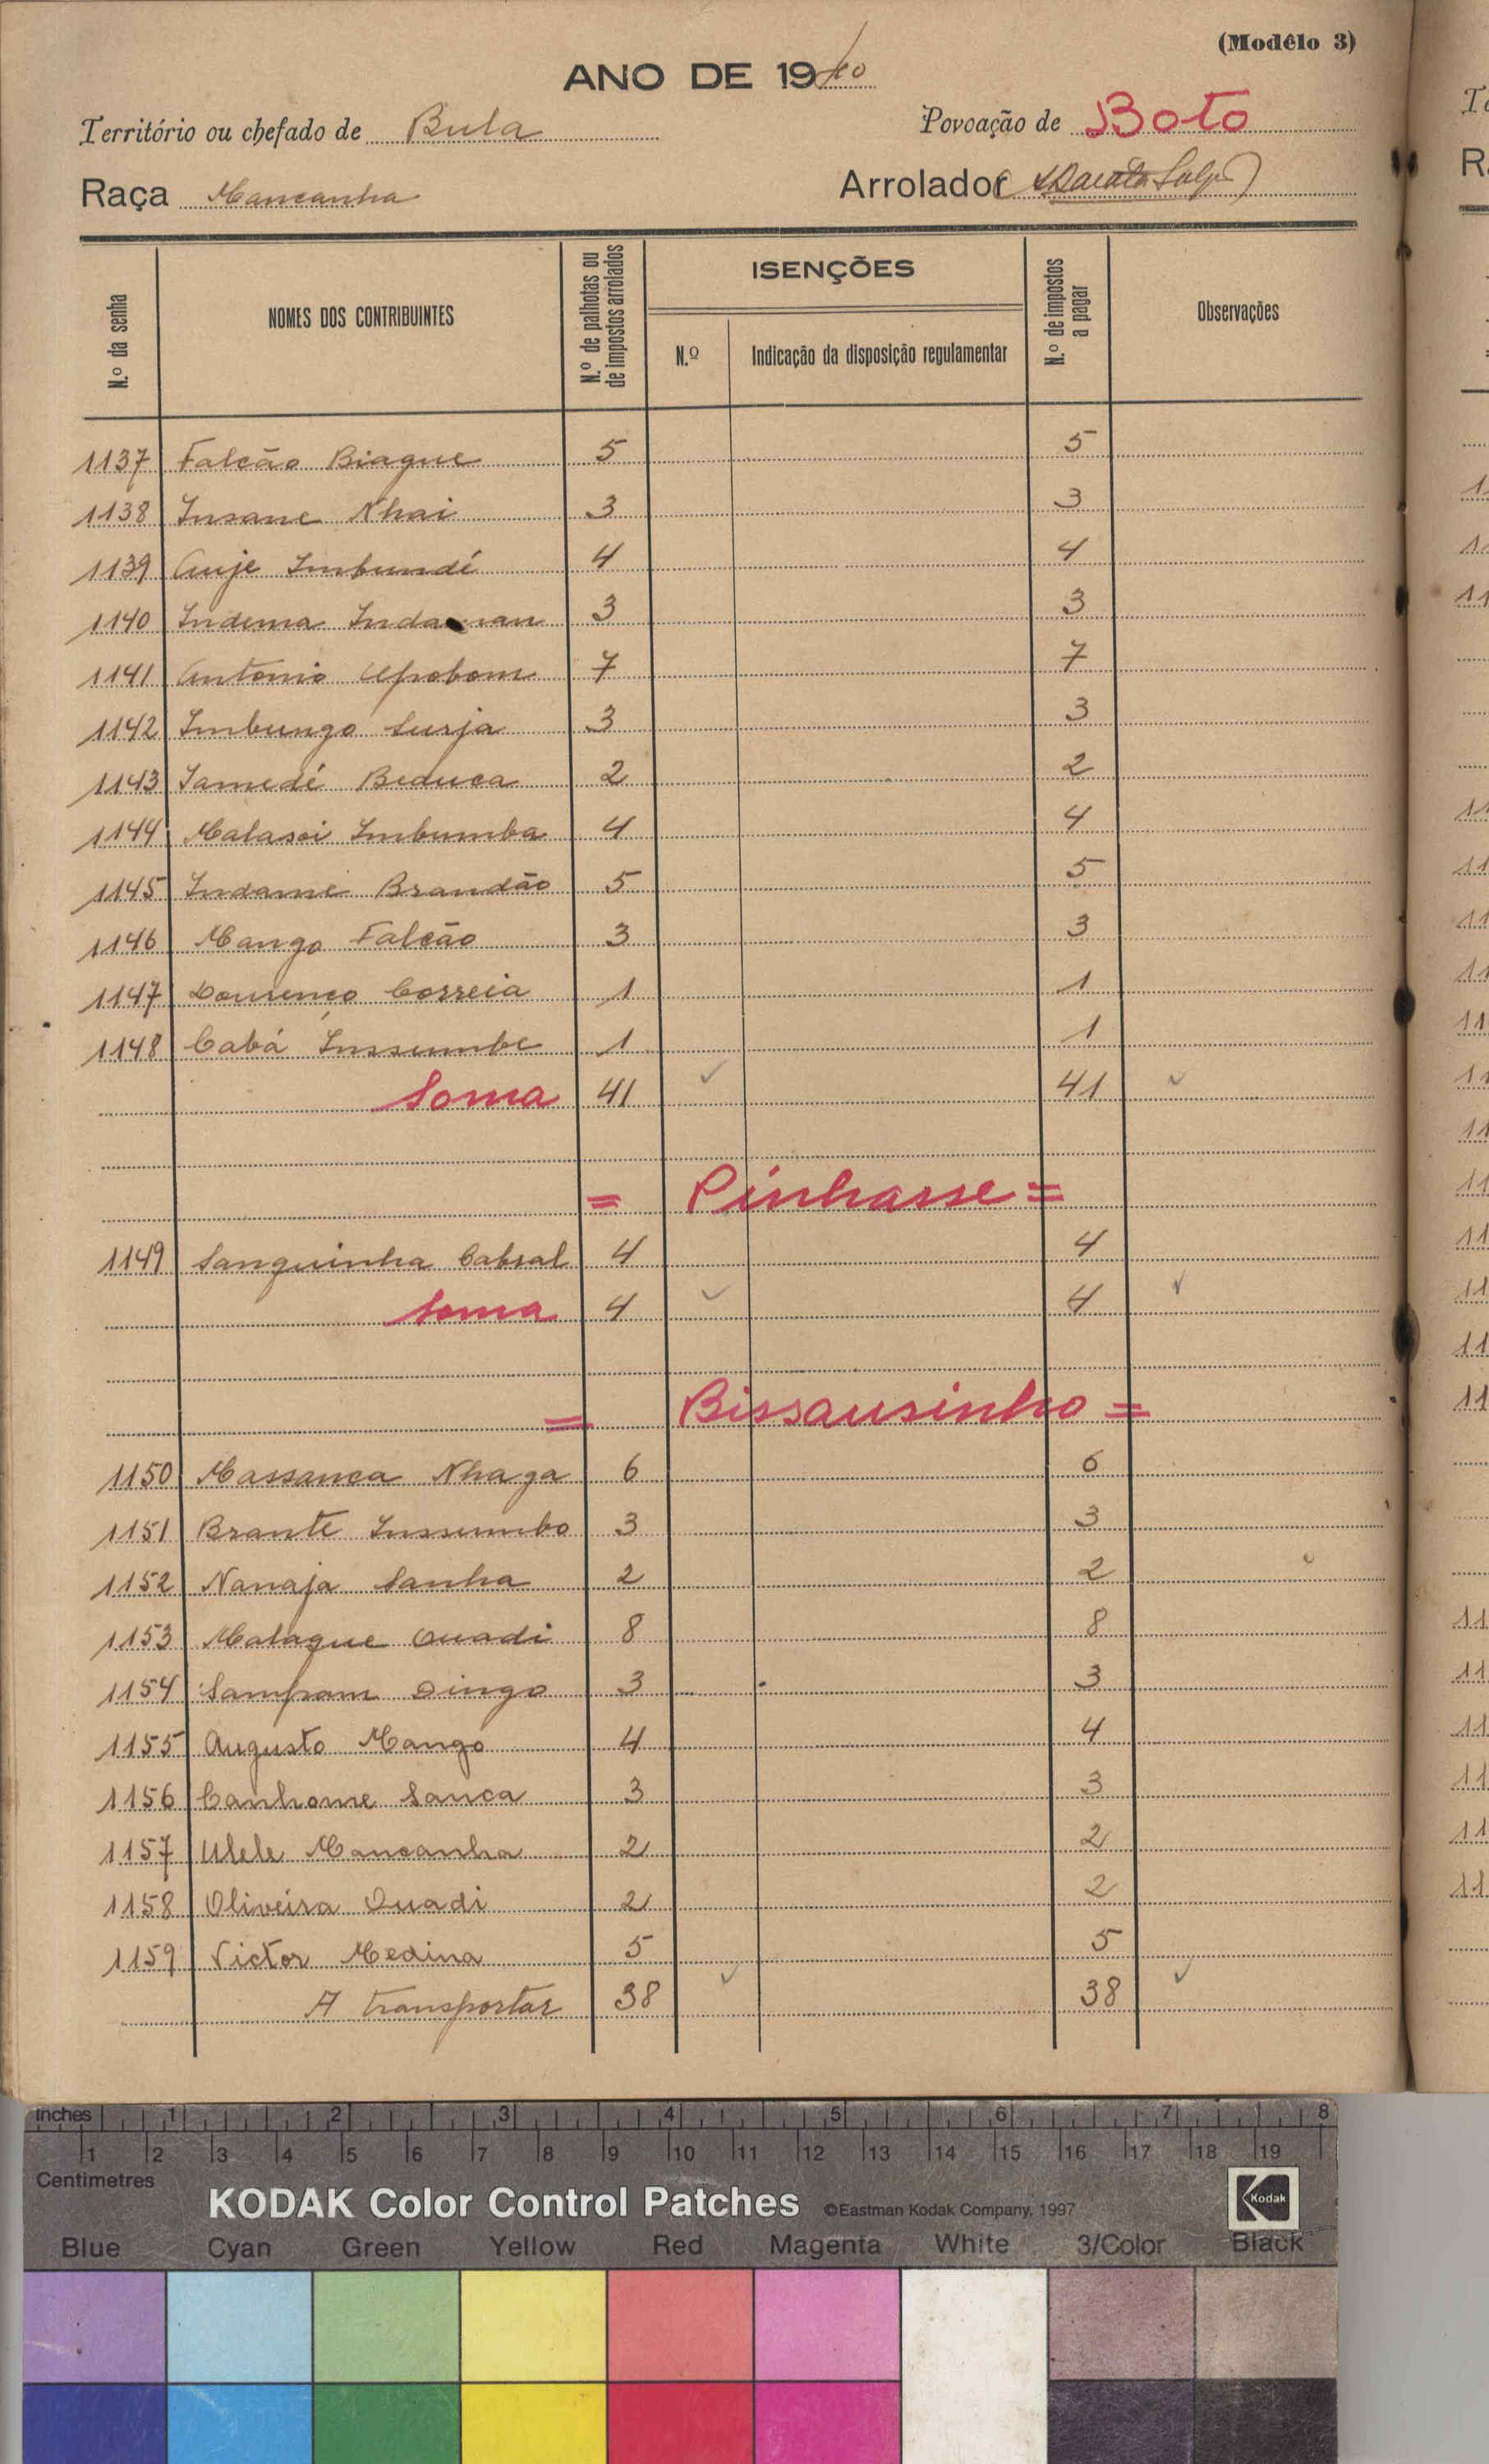 (Modêlo 3)
ANO DE 19
Território ou chefado de Bula
Povoação de Boto
Raça Mancanha
Arrolador
N.º da senha
NOMES DOS CONTRIBUINTES
N.º de palhotas ou de impostos arrolados
ISENÇÕES
N.º
Indicação da disposição regulamentar
N.º de impostos a pagar
Observações
1137 Falcão Biague 5 5
1138 Insane Nhai 3 3
1139 Anje Imbundé 4 4
1140 Indema 3 3
1141 Antonio Uprobom 7 7
1142 Imbungo Surja 3 3
1143 Jamedé Beduca 2 2
1144 Malasoi Imbumba 4 4
1145 Indame Brandão 5 5
1146 Mango Falcão 3 3
1147 Lourenço Correia 1 1
1148 Cabá Inssumbe 1 1
Soma 41 41
= Pinhasse =
1149 Sanquinha Cabral 4 4
Soma 4 4
= Bissausinho =
1150 Massanca Nhaga 6 6
1151 Brante Inssumbo 3 3
1152 Nanaja Sanha 2 2
1153 Malaque Quadi 8 8
1154 Sampam Dingo 3 3
1155 Augusto Mango 4 4
1156 Canhome Sanca 3 3
1157 Ulele Mancanha 2 2
1158 Oliveira Quadi 2 2
1159 Victor Medina 5 5
A transportar 38 38
inches 1 2 3 4 5 6 7 8
1 2 3 4 5 6 7 8 9 10 11 12 13 14 15 16 17 18 19
Centimetres
KODAK Color Control Patches ©Eastman Kodak Company, 1997 Kodak
Blue Cyan Green Yellow Red Magenta White 3/Color Black